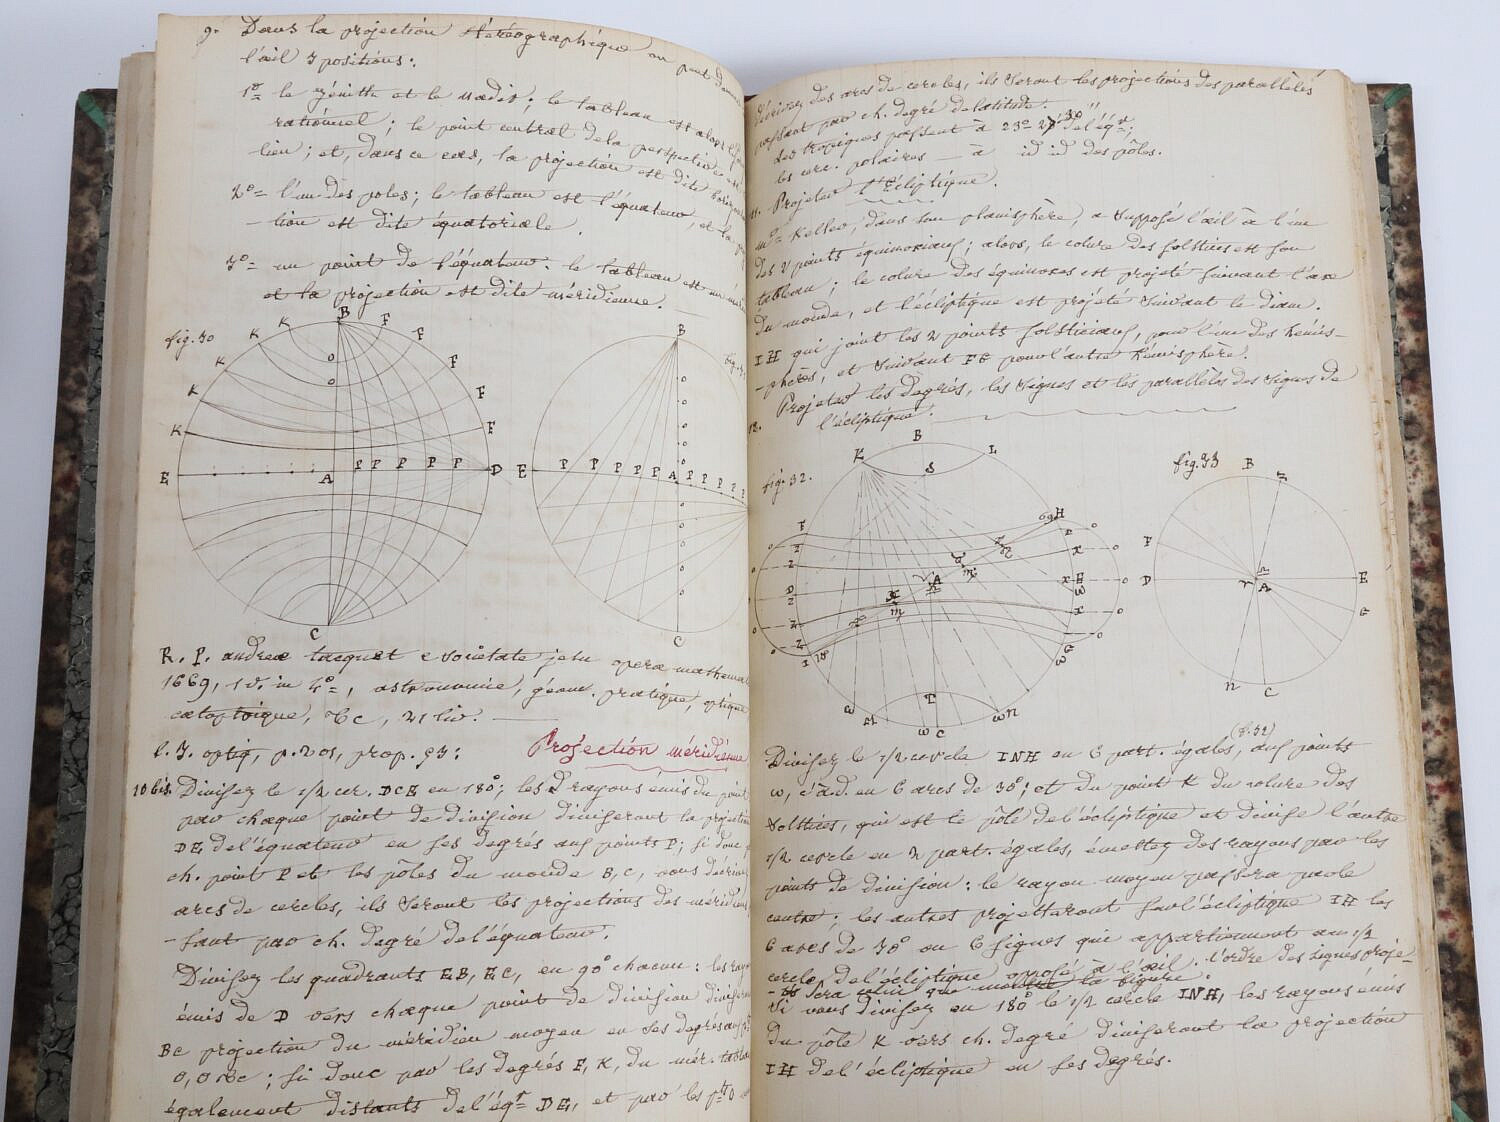 9. Dans la projection stéréographique on peut donner
l'œil 3 positions:
1° = le zénith et le nadir; le tableau est alors
rationnel; le point central de la perspective est
lieu; et, dans ce cas, la projection est dite
2° = l'un des poles; le tableau est l'équateur, et la
-tion est dite équatoriale.
3° = un point de l'équateur. le tableau est un
et la projection est dite méridienne.
fig. 30
B
K K F F F F F K K K
O
O
E A P P P P P D
C
B
O O O O O
E P P P P P A P P P P P
O O O O O O O
C
R. P. andreæ tacquet e societate jesu opera mathema
1669, 1 v. in 4°=, astronomie, géom. pratique, optique
catoptrique, &c, 21 liv.
l. 3. optiq, p. 201, prop. 93: Projection méridienne
10 bis. Divisez le 1/2 cer. DCE en 180°; les rayons émis du point
par chaque point de division diviseront la projection
DE de l'équateur en ses degrés aux points P; si donc
ch. point P et les pôles du monde B, C, vous décrivez
arcs de cercles, ils seront les projections des méridiens
-sant par ch. degré de l'équateur.
Divisez les quadrants EB, EC, en 90° chacun: les ray
émis de D vers chaque point de division diviseront
BC projection du méridien moyen en ses degrés aux
O, O &c; si donc par les degrés F, K, du mér. tableau
également distants de l'éqr DE, et par les pts O
décrivez des arcs de cercles, ils seront les projections des parallèles
passant par ch. degré de latitude.
les tropiques passent à 23° 30" de l'éqr;
les cerc. polaires — à id id des pôles.
11. Projeter l'écliptique.
mr= Keller, dans son planisphère, a supposé l'œil à l'un
des 2 points équinoxiaux; alors, le colure des solstices est son
tableau; le colure des équinoxes est projeté suivant l'axe
du monde, et l'écliptique est projeté suivant le diam.
IH qui joint les 2 points solsticiaux, pour l'un des hémis-
-phères, et suivant FG pour l'autre hémisphère.
12. Projeter les degrés, les signes et les parallèles des signes de
l'écliptique.
fig. 32.
K B L
S
H
A
I
T
C
fig. 33
B
F
D A E
G
n C
Divisez le 1/2 cercle INH en 6 part. égales, (f. 32) aux points
w, c'à.d. en 6 arcs de 30°; et du point K du colure des
solstices, qui est le pôle de l'écliptique et divise l'autre
1/2 cercle en 2 part. égales, émettez des rayons par les
points de division: le rayon moyen passera par le
centre; les autres projetteront sur l'écliptique IH les
6 arcs de 30° ou 6 signes qui appartiennent au 1/2
cercle de l'écliptique opposé à l'œil. l'ordre des signes proje-
-tés sera celui que montre la figure.
Si vous divisez en 180° le 1/2 cercle INH, les rayons émis
du pôle K vers ch. degré diviseront la projection
IH de l'écliptique en ses degrés.